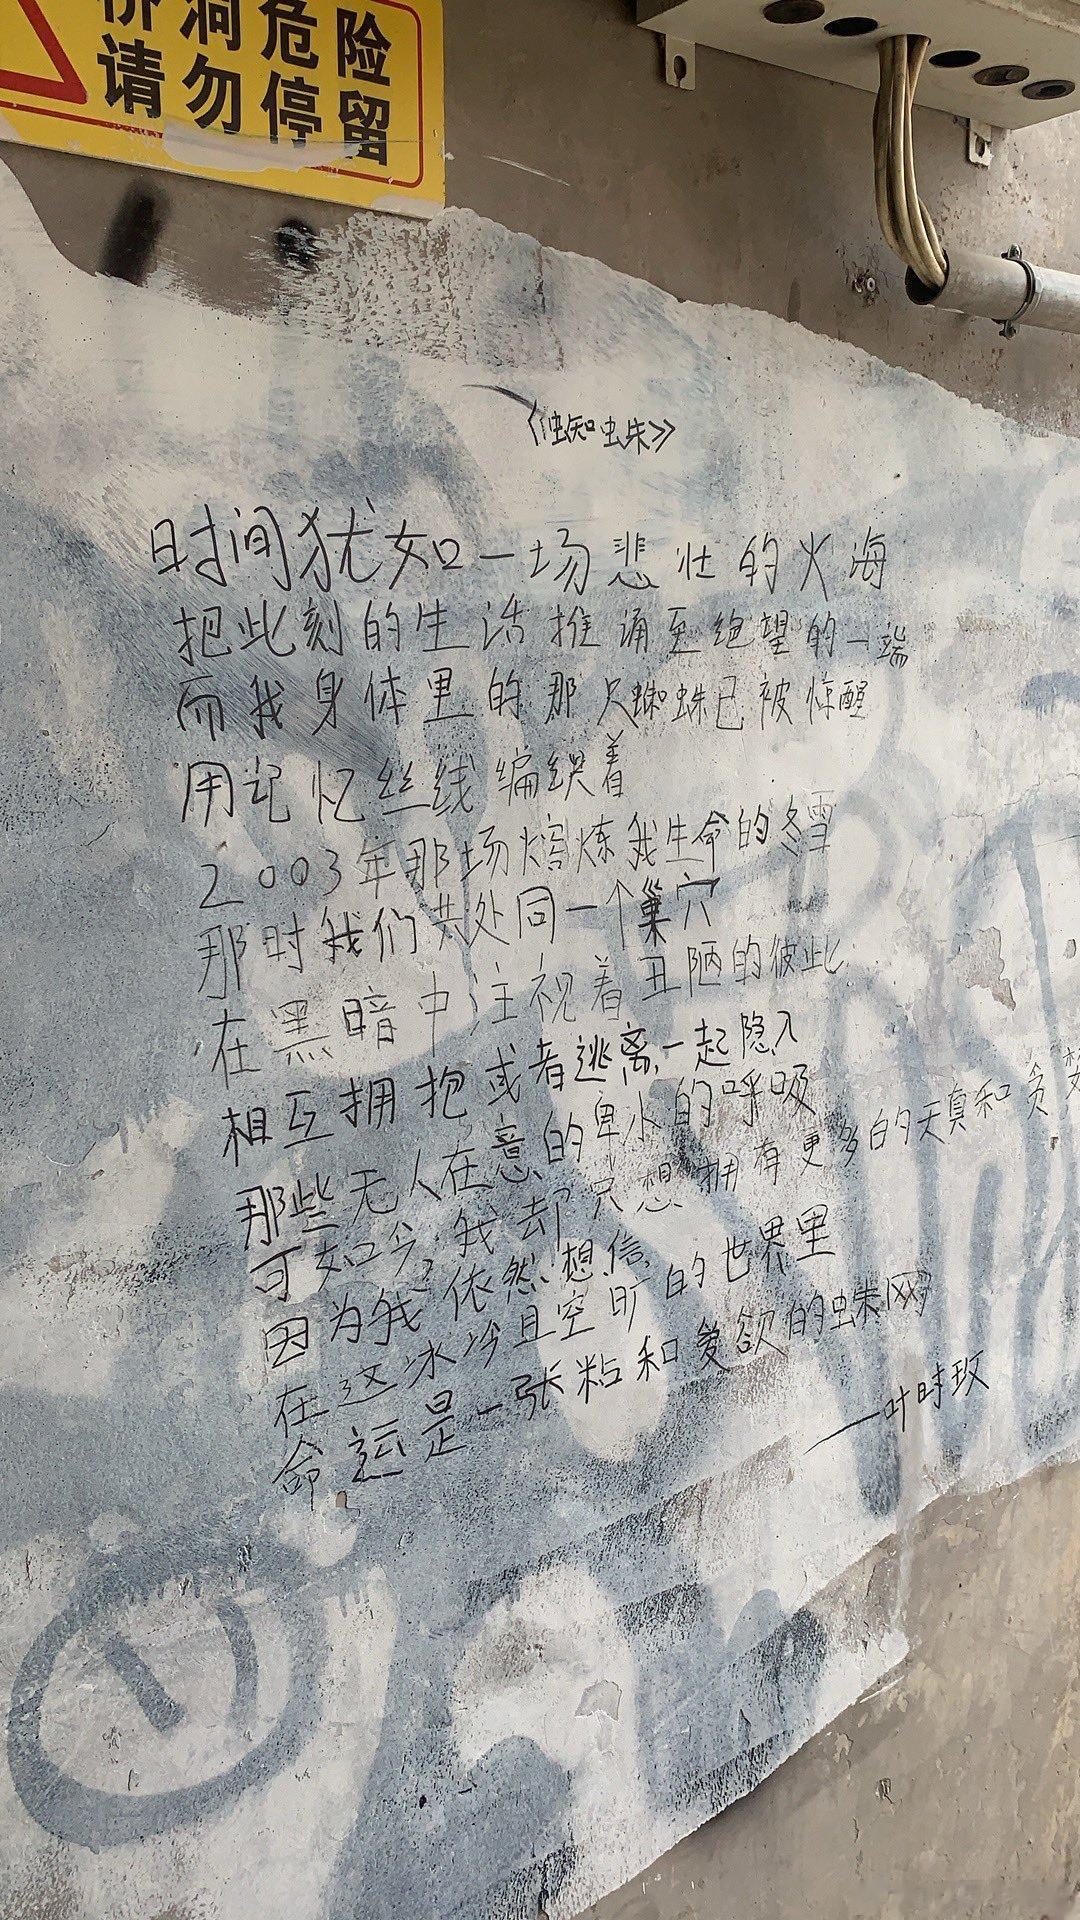 桥洞危险
请勿停留
《蜘蛛》
时间犹如一场悲壮的火海
把此刻的生活推诵至绝望的一端
而我身体里的那只蜘蛛已被惊醒
用记忆丝线编织着
2003年那场熔炼我生命的冬雪
那时我们共处同一个巢穴
在黑暗中注视着丑陋的彼此
相互拥抱或者逃离一起隐入
那些无人在意的卑水的呼吸
可如今,我却只想拥有更多的天真和贪婪
因为我依然想信
在这冰冷且空旷的世界里
命运是一张粘和爱欲的蛛网
——叶时玫